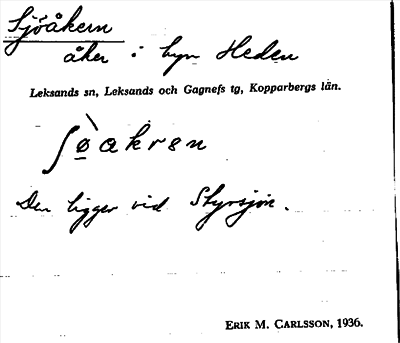 Sjöåkern
åker i byn Heden
Leksands sn, Leksands och Gagnefs tg, Kopparbergs län.
ʃø̠̀akrən
Den ligger vid Styrsjön.
ERIK M. CARLSSON, 1936.